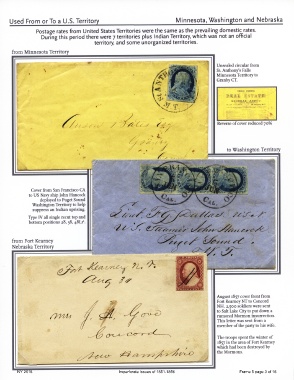 Used From or To a U.S. Territory
Minnesota, Washington and Nebraska
Postage rates from United States Territories were the same as the prevailing domestic rates.
During this period there were 7 territories plus Indian Territory, which was not an official
territory, and some unorganized territories.
from Minnesota Territory
Unsealed circular from
St. Anthony's Falls
Minnesota Territory to
Granby CT.
Reverse of cover reduced 70%
to Washington Territory
Cover from San Francisco CA
to US Navy ship John Hancock
deployed to Puget Sound
Washington Territory to help
suppress an Indian uprising.
Type IV all single recut top and
bottom positions
Lieut.
U.S. Steamer John Hancock
Puget Sound
W.T.
from Fort Kearney
Nebraska Territory
Fort Kearney N.T.
Aug 30
Mrs J. H. Gove
Concord
New Hampshire
August 1857 cover front from
Fort Kearney NT to Concord
NH. 2,500 soldiers were sent
to Salt Lake City to put down a
rumored Mormon insurrection.
This letter was sent from a
member of the party to his wife.
The troops spent the winter of
1857 in the area of Fort Kearney
which had been destroyed by
the Mormons.
NY 2016
Imperforate Issues of 1851-1856
Frame 5 page 3 of 16